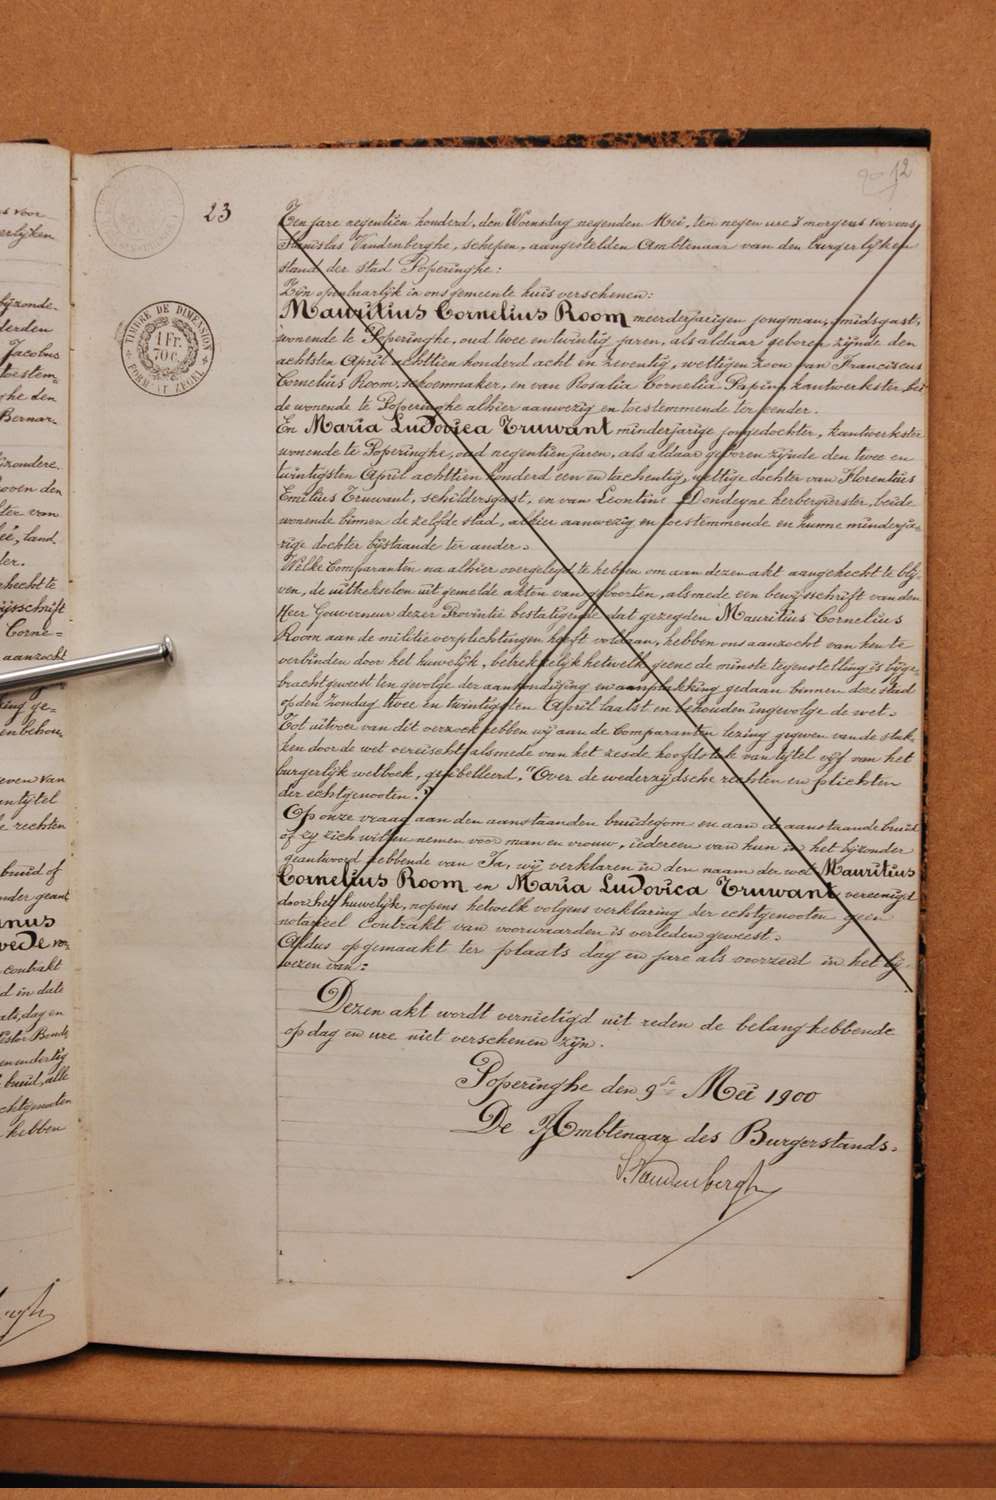 12
23
Ten jare negentien honderd, den Woensdag negenden Mei, ten negen ure 's morgens voor ons,
Stanislas Vandenberghe, schepen, aangestelden Ambtenaar van den burgerlijken
stand der stad Poperinghe:
Zijn openbaarlijk in ons gemeente huis verschenen:
Mauritius Cornelius Room meerderjarigen jongman, smidsgast,
wonende te Poperinghe, oud twee en twintig jaren, als aldaar geboren zijnde den
achtsten April achttien honderd acht en zeventig, wettigen zoon van Franciscus
Cornelius Room, schoenmaker, en van Rosalia Cornelia Papin, kantwerkster, bei-
de wonende te Poperinghe alhier aanwezig en toestemmende ter eender.
En Maria Ludovica Truwant minderjarige jongedochter, kantwerkster
wonende te Poperinghe, oud negentien jaren, als aldaar geboren zijnde den twee en
twintigsten April achttien honderd een en tachentig, wettige dochter van Florentius
Emilius Truwant, schildersgast, en van Leontine Dondeyne herbergierster, beide
wonende binnen de zelfde stad, alhier aanwezig en toestemmende en hunne minderja-
rige dochter bijstaande ter ander.
Welke Comparanten na alhier overgelegd te hebben om aan dezen akt aangehecht te blij-
ven, de uittreksels uit gemelde akten van geboorten, alsmede een bewijsschrift van den
Heer Gouverneur dezer Provintie bestatigende dat gezegden Mauritius Cornelius
Room aan de militieverplichtingen heeft voldaan, hebben ons aanzocht van hen te
verbinden door het huwelijk, betrekkelijk hetwelk geene de minste tegenstelling is bijge-
bracht geweest ten gevolge der aankondiging en aanplakking gedaan binnen deze stad
op den zondag twee en twintigsten April laatst en behouden ingevolge de wet.
Tot uitvoer van dit verzoek hebben wij aan de Comparanten lezing gegeven van de stuk-
ken door de wet vereischt alsmede van het zesde hoofdstuk van tijtel vijf van het
burgerlijk wetboek, gelibelleerd. "Over de wederzijdsche rechten en plichten
der echtgenooten."
Op onze vraag aan den aanstaanden bruidegom en aan de aanstaande bruid
of zy zich willen nemen voor man en vrouw, iedereen van hun in het bijzonder
geantwoord hebbende van Ja, wij verklaren in den naam der wet Mauritius
Cornelius Room en Maria Ludovica Truwant vereenigd
door het huwelijk, nopens hetwelk volgens verklaring der echtgenooten geen
notarieel contrakt van voorwaarden is verleden geweest.
Aldus opgemaakt ter plaats dag en jare als voorzeid in het bij-
wezen van:
Dezen akt wordt vernietigd uit reden de belanghebbende
op dag en ure niet verschenen zijn.
Poperinghe den 9de Mei 1900
De Ambtenaar des Burgerstands.
S. Vandenberghe
TIMBRE DE DIMENSION
1 Fr.
70 C.
FORMAAT ZEGEL